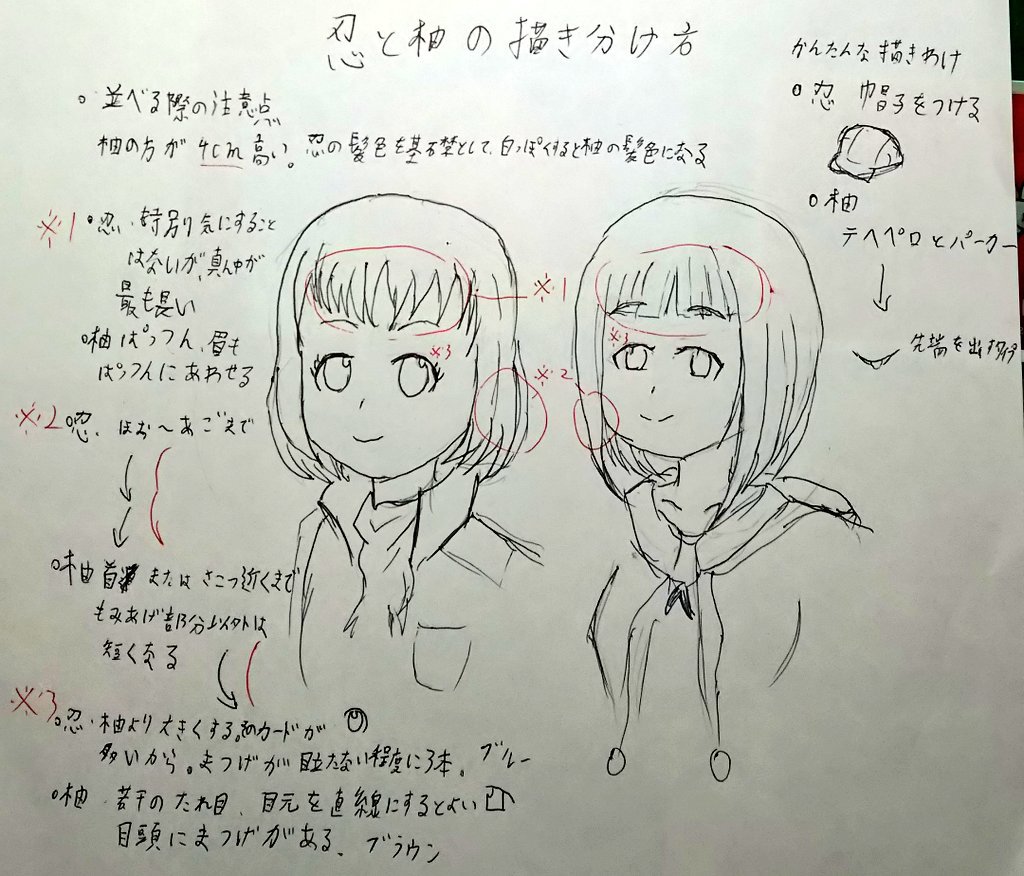 忍と柚の描き分け方
。並べる際の注意点
柚の方が4cm高い。忍の髪色を基礎として、白っぽくすると柚の髪色になる
かんたんな描きわけ
○忍 帽子をつける
○柚
テヘペロとパーカー
↓
先端を出す
※1 ○忍、特別気にすること
はないが、真ん中が
最も長い
○柚ぱっつん、眉も
ぱっつんにあわせる
※2 ○忍、ほお〜あごまで
○柚 首 または さこつ近くまで
もみあげ部分以外は
短くなる
※3 ○忍・柚より大きくする。カードが
多いから。まつげが目立たない程度に3本。ブルー
○柚・若干のたれ目、目元を直線にするとよい
目頭にまつげがある、ブラウン
※1
※3
※2
※3